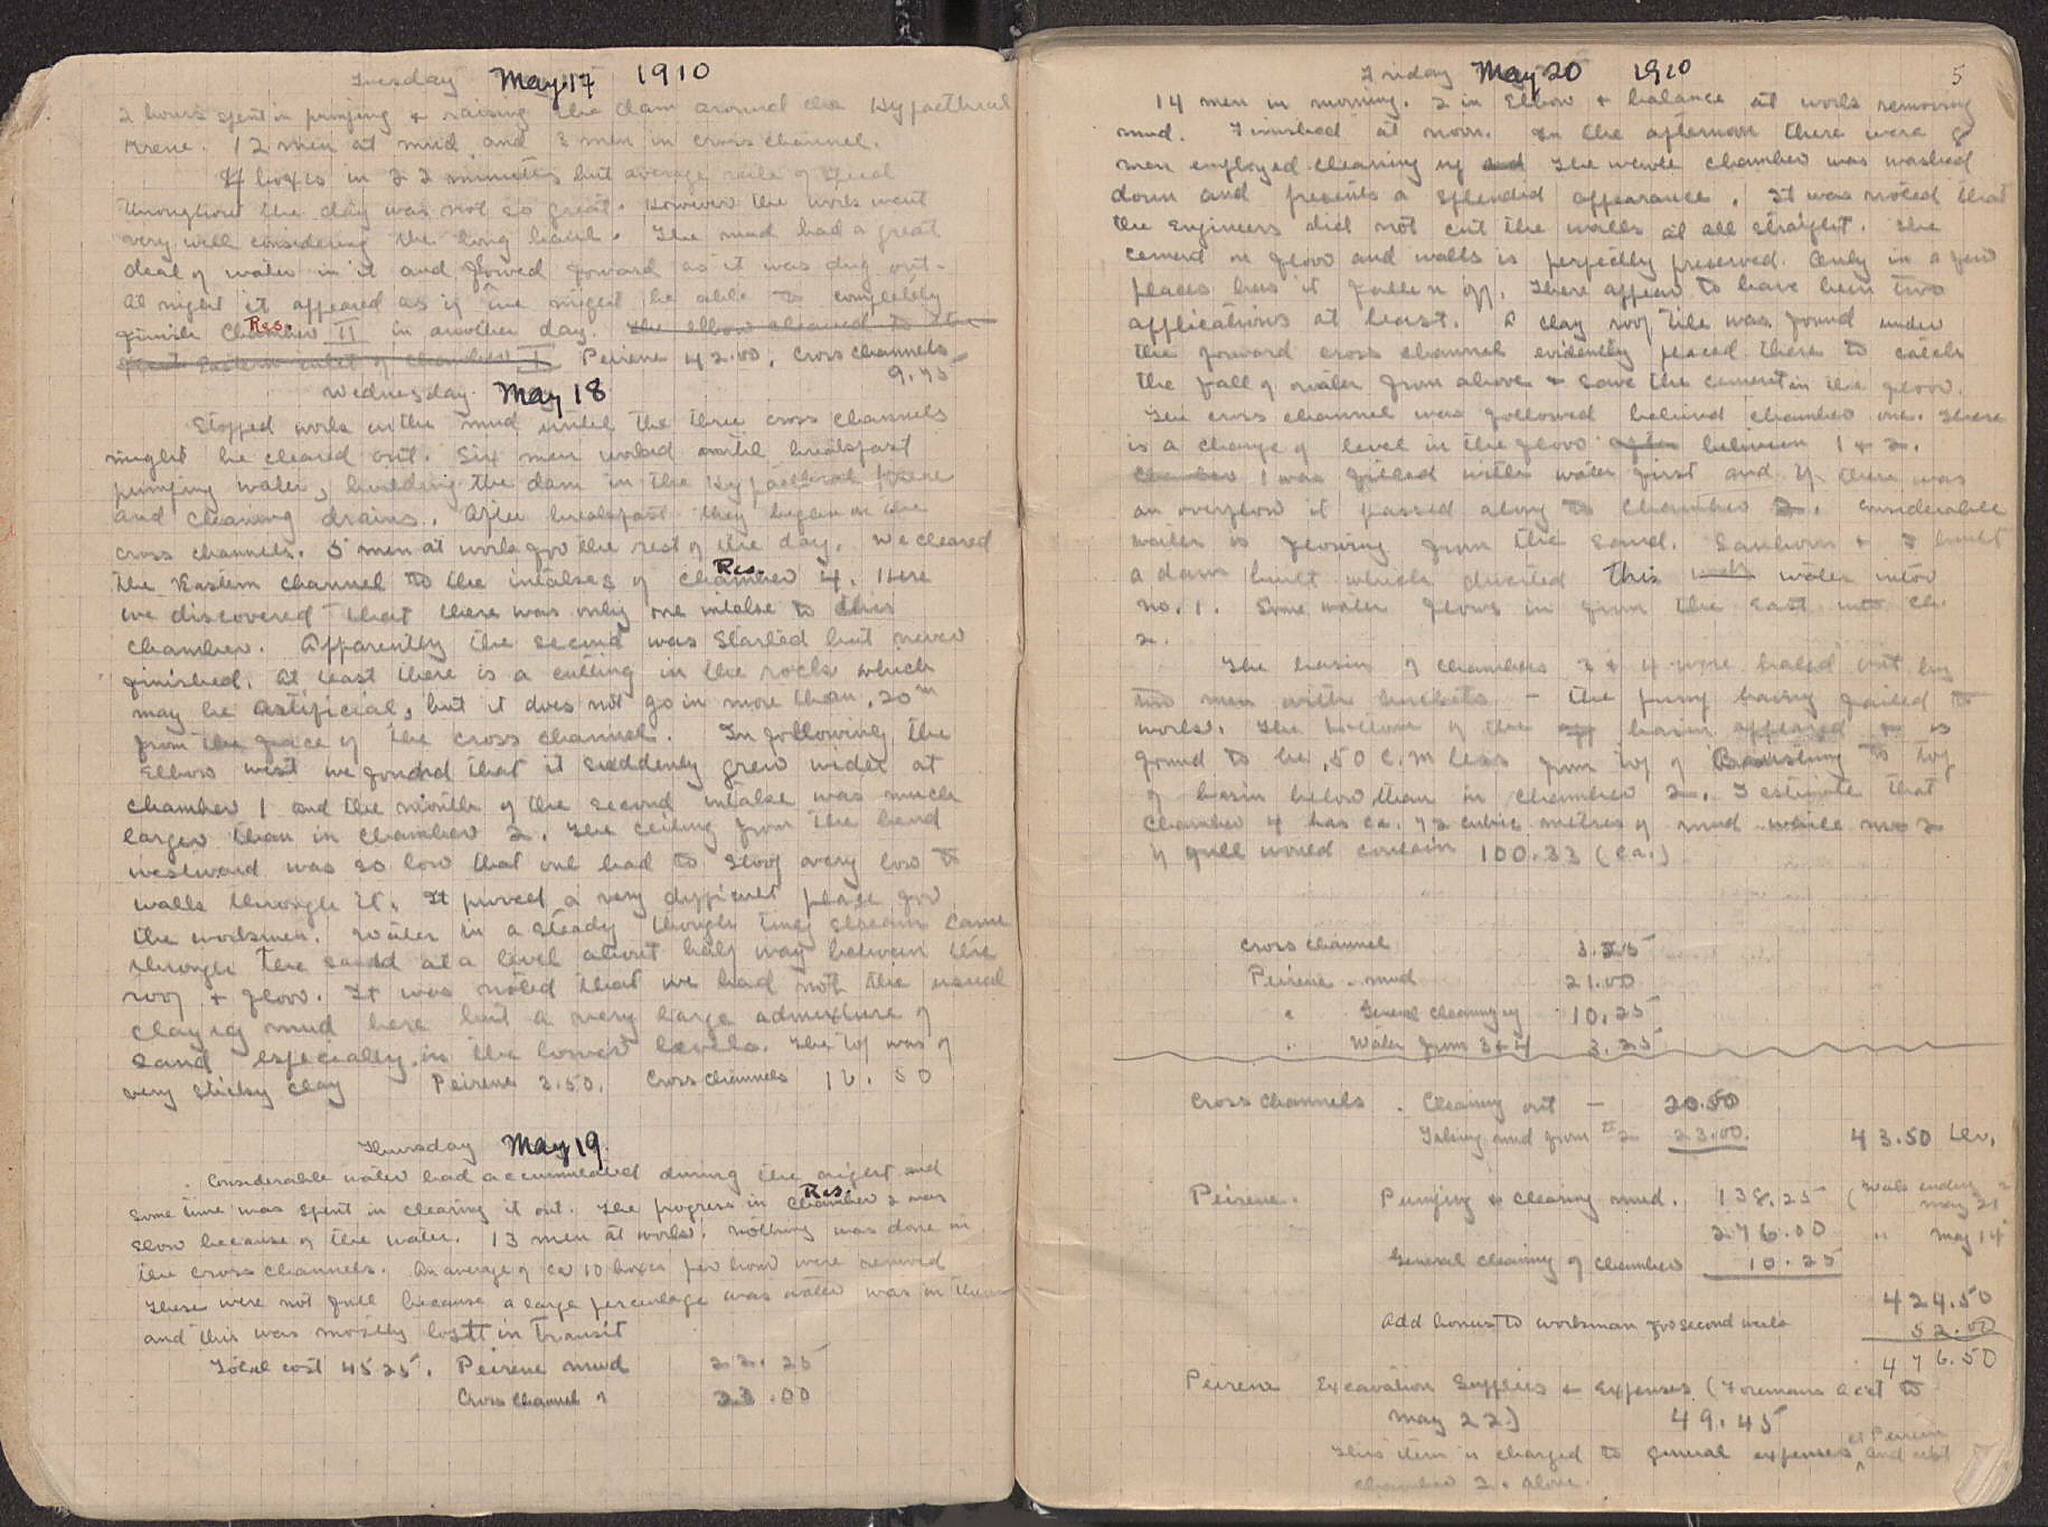 Tuesday May 17 1910
2 hours spent in pumping & raising the dam around the Hypaethral
Krene. 12 men at mud and 3 men in cross channel.
boxes in 22 minutes but average rate of speed
throughout the day was not so great. However the work went
very well considering the long haul. The mud had a great
deal of water in it and flowed forward as it was dug out.
At night it appeared as if we might be able to completely
Res.
finish Chamber II in another day. The elbow cleaned to the
Eastern inlet of chamber I Peirene 42.00, Cross channels
9.75
Wednesday May 18
Stopped work in the mud until the three cross channels
might be cleared out. Six men worked until breakfast
pumping water, building the dam in the Hypaethral Krene
and cleaning drains. After breakfast they began on the
cross channels. 5 men at work for the rest of the day. We cleared
Res.
the Eastern channel to the intakes of chamber 4. Here
we discovered that there was only one intake to this
chamber. Apparently the second was started but never
finished. At least there is a cutting in the rock which
may be artificial, but it does not go in more than .20 m
from the face of the cross channel. In following the
Elbow west we found that it suddenly grew wider at
chamber 1 and the mouth of the second intake was much
larger than in chamber 2. The ceiling from the bend
westward was so low that one had to stoop very low to
walk through it. It proved a very difficult place for
the workmen. Water in a steady though tiny stream came
through the sand at a level about half way between the
roof & floor. It was noted that we had not the usual
clayey mud here but a very large admixture of
sand especially in the lower levels. The top was of
very sticky clay Peirene 3.50. Cross channels 10.50
Thursday May 19.
Considerable water had accumulated during the night and
Res.
some time was spent in clearing it out. The progress in Chamber 2 was
slow because of the water. 13 men at work. Nothing was done in
the cross channels. An average of ca 10 boxes per hour were removed
These were not full because a large percentage was water was in them
and this was mostly lost in transit
Total cost 45 25. Peirene mud 22.25
Cross Channel " 23.00
Friday May 20 1910 5
14 men in morning. 2 in Elbow & balance at work removing
mud. Finished at noon. In the afternoon there were 8
men employed cleaning up and The whole chamber was washed
down and presents a splendid appearance. It was noted that
the Engineers did not cut the walls at all straight. The
cement on floor and walls is perfectly preserved. Only in a few
places has it fallen off. There appear to have been two
applications at least. A clay roof tile was found under
the forward cross channel evidently placed there to catch
the fall of water from above & save the cement in the floor.
The cross channel was followed behind chamber one. There
is a change of level in the floor after between 1 & 2.
Chamber 1 was filled with water first and if there was
an overflow it passed along to Chamber 2. Considerable
water is flowing from the sand. Sanborn & I built
a dam built which diverted this water into
no. 1. Some water flows in from the East into ch.
2.
The basin of chambers 3 & 4 were baled out by
two men with buckets - the pump having failed to
work. The bottom of the basin appeared to is
found to be .50 c.m less from top of to top
of basin below than in chamber 2. I estimate that
Chamber 4 has ca. 72 cubic metres of mud while no 2
if full would contain 100.33 (ca.)
Cross channel 3.25
Peirene - mud 21.00
" General cleaning up 10.25
" Water from 3 & 4 3.25
Cross channels. Cleaning out - 20.50
Taking mud from # 2 23.00. 43.50 Lev.
Peirene. Pumping & clearing mud. 138.25 (Week ending May 21
" 276.00 " May 14
General cleaning of chamber 10.25
424.50
Add bonus to workman for second week 52.00
476.50
Peirene Excavation Supplies & Expenses (Foremans acct to
May 22) 49.45
at Peirene
This item is charged to general expenses and not to
chamber 2. alone.